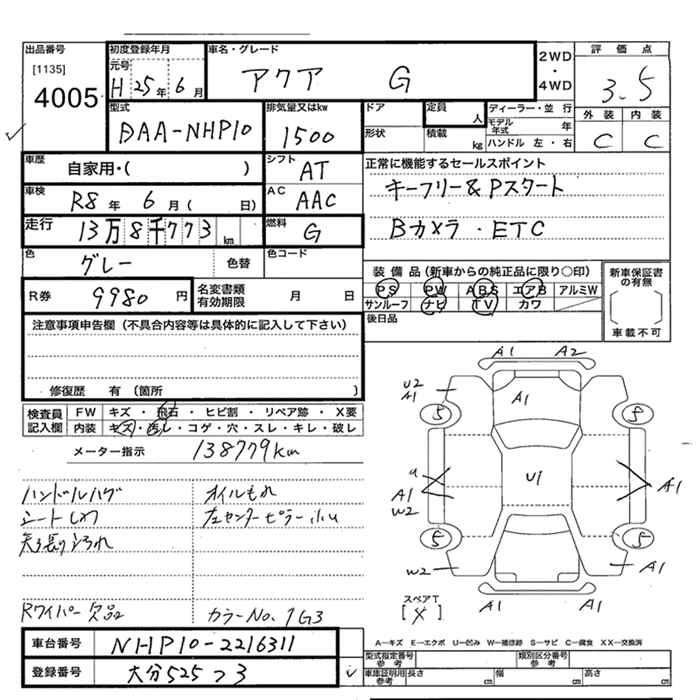 出品番号
[1135]
4005
初度登録年月
元号
H 25年 6月
車名・グレード
アクア G
2WD
・
4WD
評価点
3.5
外装 内装
C C
型式
DAA-NHP10
排気量又はkw
1500
ドア
形状
定員
人
積載
kg
ディーラー・並行
モデル年式 年
ハンドル 左・右
車歴
自家用・( )
シフト
AT
正常に機能するセールスポイント
キーフリー&Pスタート
Bカメラ・ETC
車検
R8年 6月( 日)
AC
AAC
走行
13万8千773km
燃料
G
色
グレー
色替
色コード
装備品(新車からの純正品に限り○印)
PS PW ABS エアB アルミW
サンルーフ ナビ TV カワ
新車保証書の有無
( )
車載不可
R券
9980円
名変書類有効期限
月 日
後日品
注意事項申告欄(不具合内容等は具体的に記入して下さい)
修復歴 有(箇所 )
検査員記入欄
FW キズ・飛石・ヒビ割・リペア跡・X要
内装 キズ・汚レ・コゲ・穴・スレ・キレ・破レ
メーター指示 138779km
ハンドルハゲ オイルもれ
シートしわ 左センターピラー小U
Rワイパー欠品 カラーNo.1G3
A1 A2
U2
A1
A1
5 5
U
A1
W2
U1
A1
5 5
W2
A1
A1 A1
スペアT
[X]
A−キズ E−エクボ U−凹み W−補修跡 S−サビ C−腐食 XX−交換済
車台番号
NHP10-2216311
登録番号
大分525つ3
型式指定番号
参考
類別区分番号
参考
車庫証明用参考
長さ cm
幅 cm
高さ cm